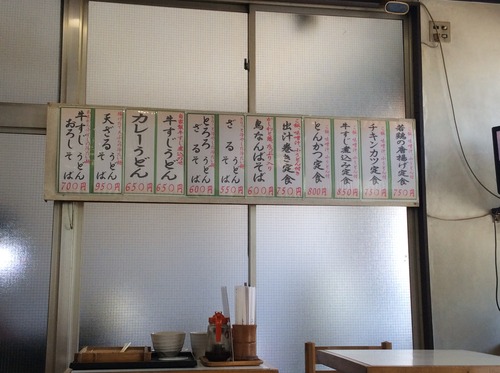 若鶏の唐揚げ定食
750円
チキンカツ定食
750円
牛すじ煮込み定食
850円
とんかつ定食
800円
出汁巻き定食
750円
鳥なんばそば
600円
ざるうどん
そば
550円
とろろうどん
ざるそば
600円
牛すじうどん
650円
カレーうどん
650円
天ざるうどん
そば
950円
牛すじうどん
おろしそば
700円